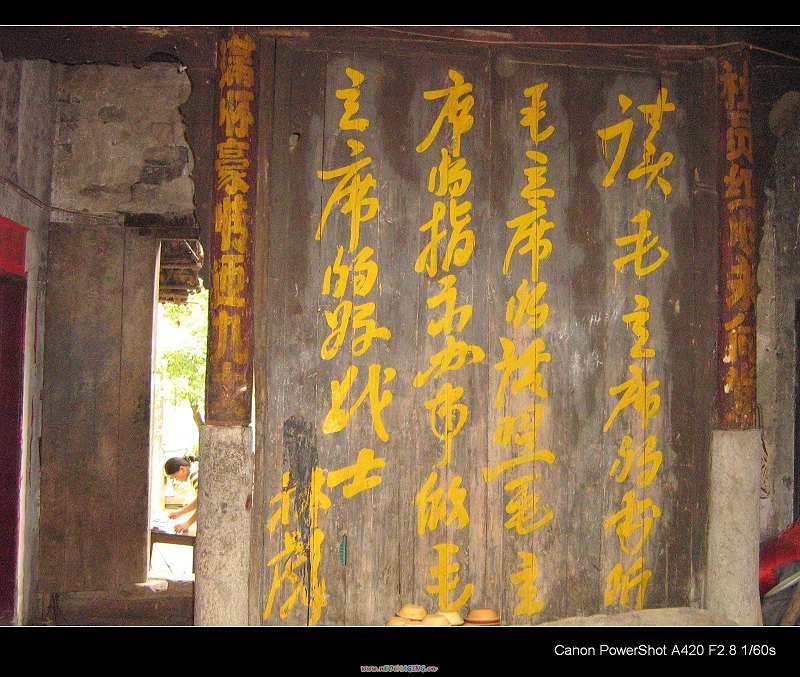 社员红心永向
读毛主席的书听
毛主席的话照毛主
席的指示办事做毛
主席的好战士
林彪
满怀豪情迎九
Canon PowerShot A420 F2.8 1/60s